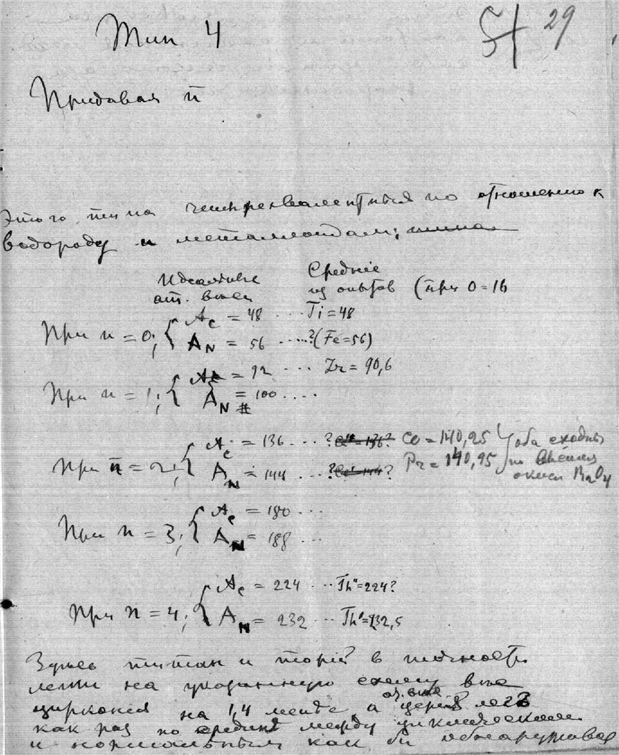 Тип 4
51 29
Придавая n
Этого типа четырехвалентный по отношению к
водороду и металлоидам;
Идеальные Среднее
ат. веса из опытов (при O=16
При n=0; { Ac = 48 ... Ti=48
AN = 56 ....?(Fe=56)
При n=1; { Ac = 92 ... Zr = 90,6
AN = 100 ....
При n=2; { Ac = 136 ... ? Ce=140,25 } оба сходны
AN = 144 ... ? Pr=140,95 по
окиси RnO4
При n=3; { Ac = 180 ...
AN = 188 ...
При n=4; { Ac = 224 ... Th"=224?
AN = 232 ... Th'=232,5
Здесь титан и торий в точности
на указанную схему
циркония на 1,4 менее, а ат. вес церия
как раз по средине между циклическим
и нормальным как бы обнаруживая